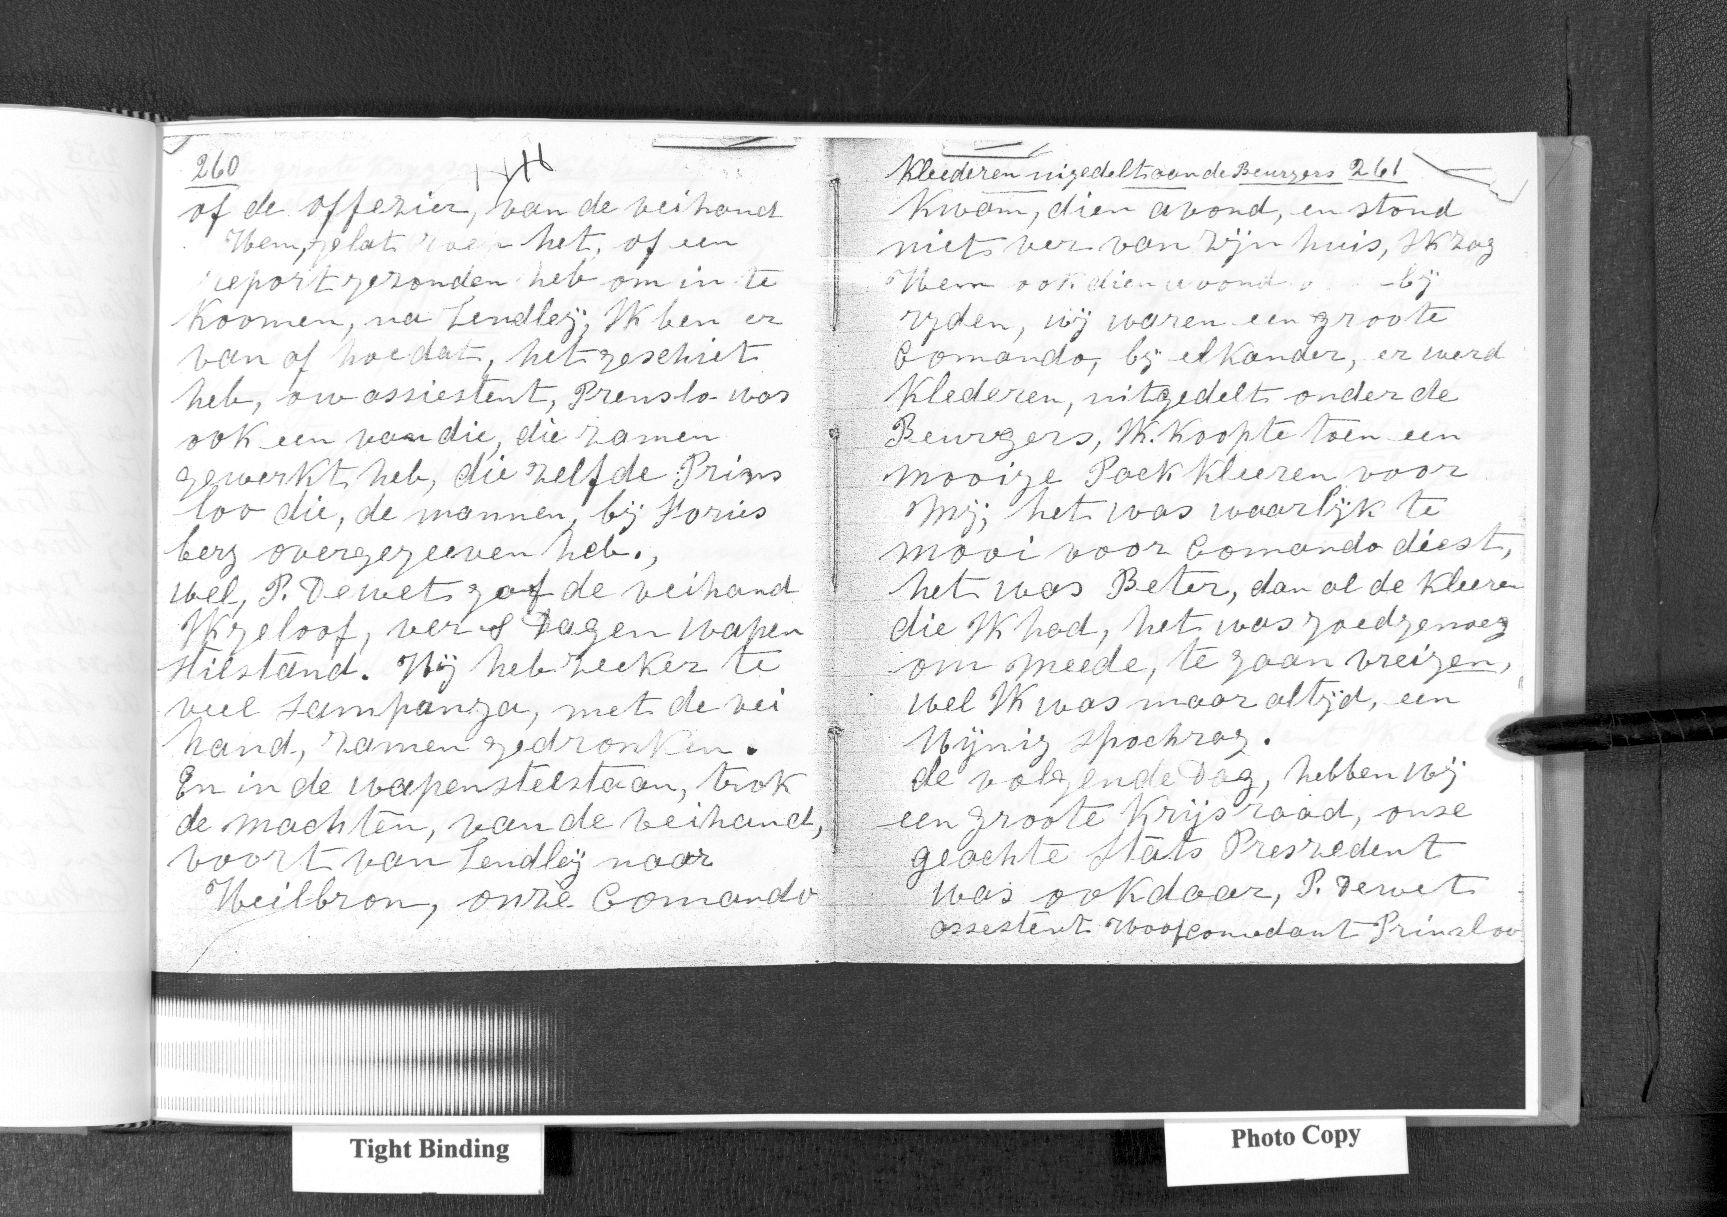 260
of de offezier, van de veihand
Hem, gelat het, of een
report gezonden heb om in te
Koomen, na Lendleÿ, Ik ben er
van of hoe dat, het geschiet
heb, ow assiestent, Prenslo was
ook een van die, die zamen
gewerkt heb, die zelfde Prins
loo die, de mannen, bÿ Fories
berg overgegeeven heb.,
wel, P. Dewet gaf de veihand
Ik geloof, ver 8 Dagen wapen
stilstand. Hÿ heb zeeker te
veel sampanza, met de vei
hand, zamen gedronken.
En in de wapenstelstaan, trok
de machten, van de veihand,
voort van Lendleÿ naar
Heilbron, onze Comando
Kleederen uigedelt aan de Beurgers 261
Kwam, dien avond, en stond
niet ver van zÿn huis, Ik zag
Hem ook dien avond bÿ
ryden, wÿ waren een groote
Comando, bÿ elkander, er werd
Klederen, uitgedelt onder de
Beurgers, Ik Koopte toen een
mooige Paek kleeren voor
Mÿ, het was waarlÿk te
mooi voor Comando diest,
het was Beter, dan al de Kleeren
die Ik had, het was goedgenoeg
om meede, te gaan vreigen,
wel Ik was maar altÿd, een
Wÿnig spochrag.
de volgende Dag, hebben Wÿ
een groote Krÿsraad, onse
geachte Stats Preszedent
was ook daar, P. Dewet
assestent Hoofcomedant Prinsloo
Tight Binding
Photo Copy